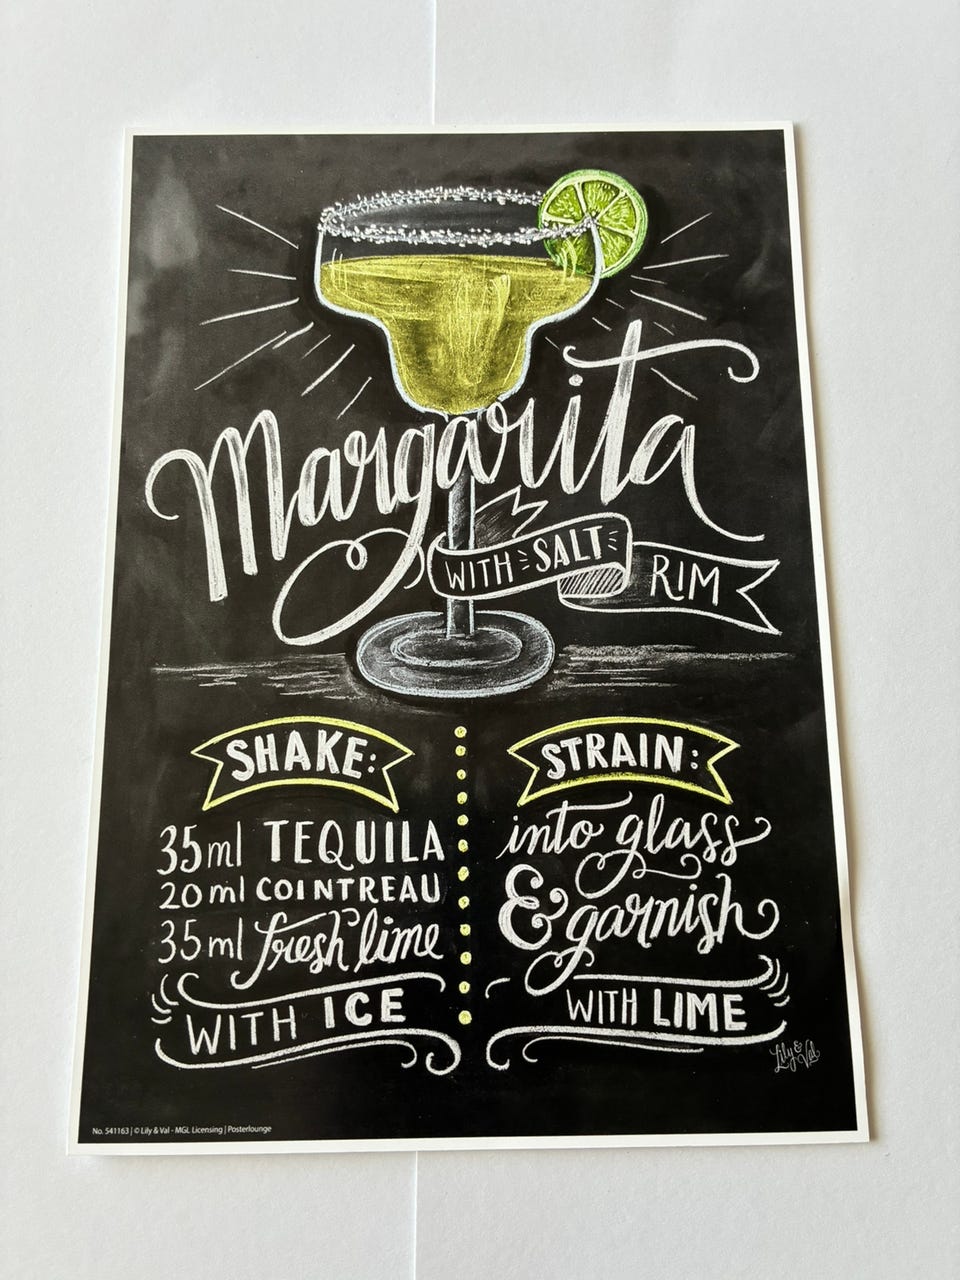 Margarita
WITH SALT RIM
SHAKE:
35ml TEQUILA
20ml COINTREAU
35ml fresh lime
WITH ICE
STRAIN:
into glass
& garnish
WITH LIME
Lily & Val
No. 541163 | © Lily & Val - MGL Licensing | Posterlounge